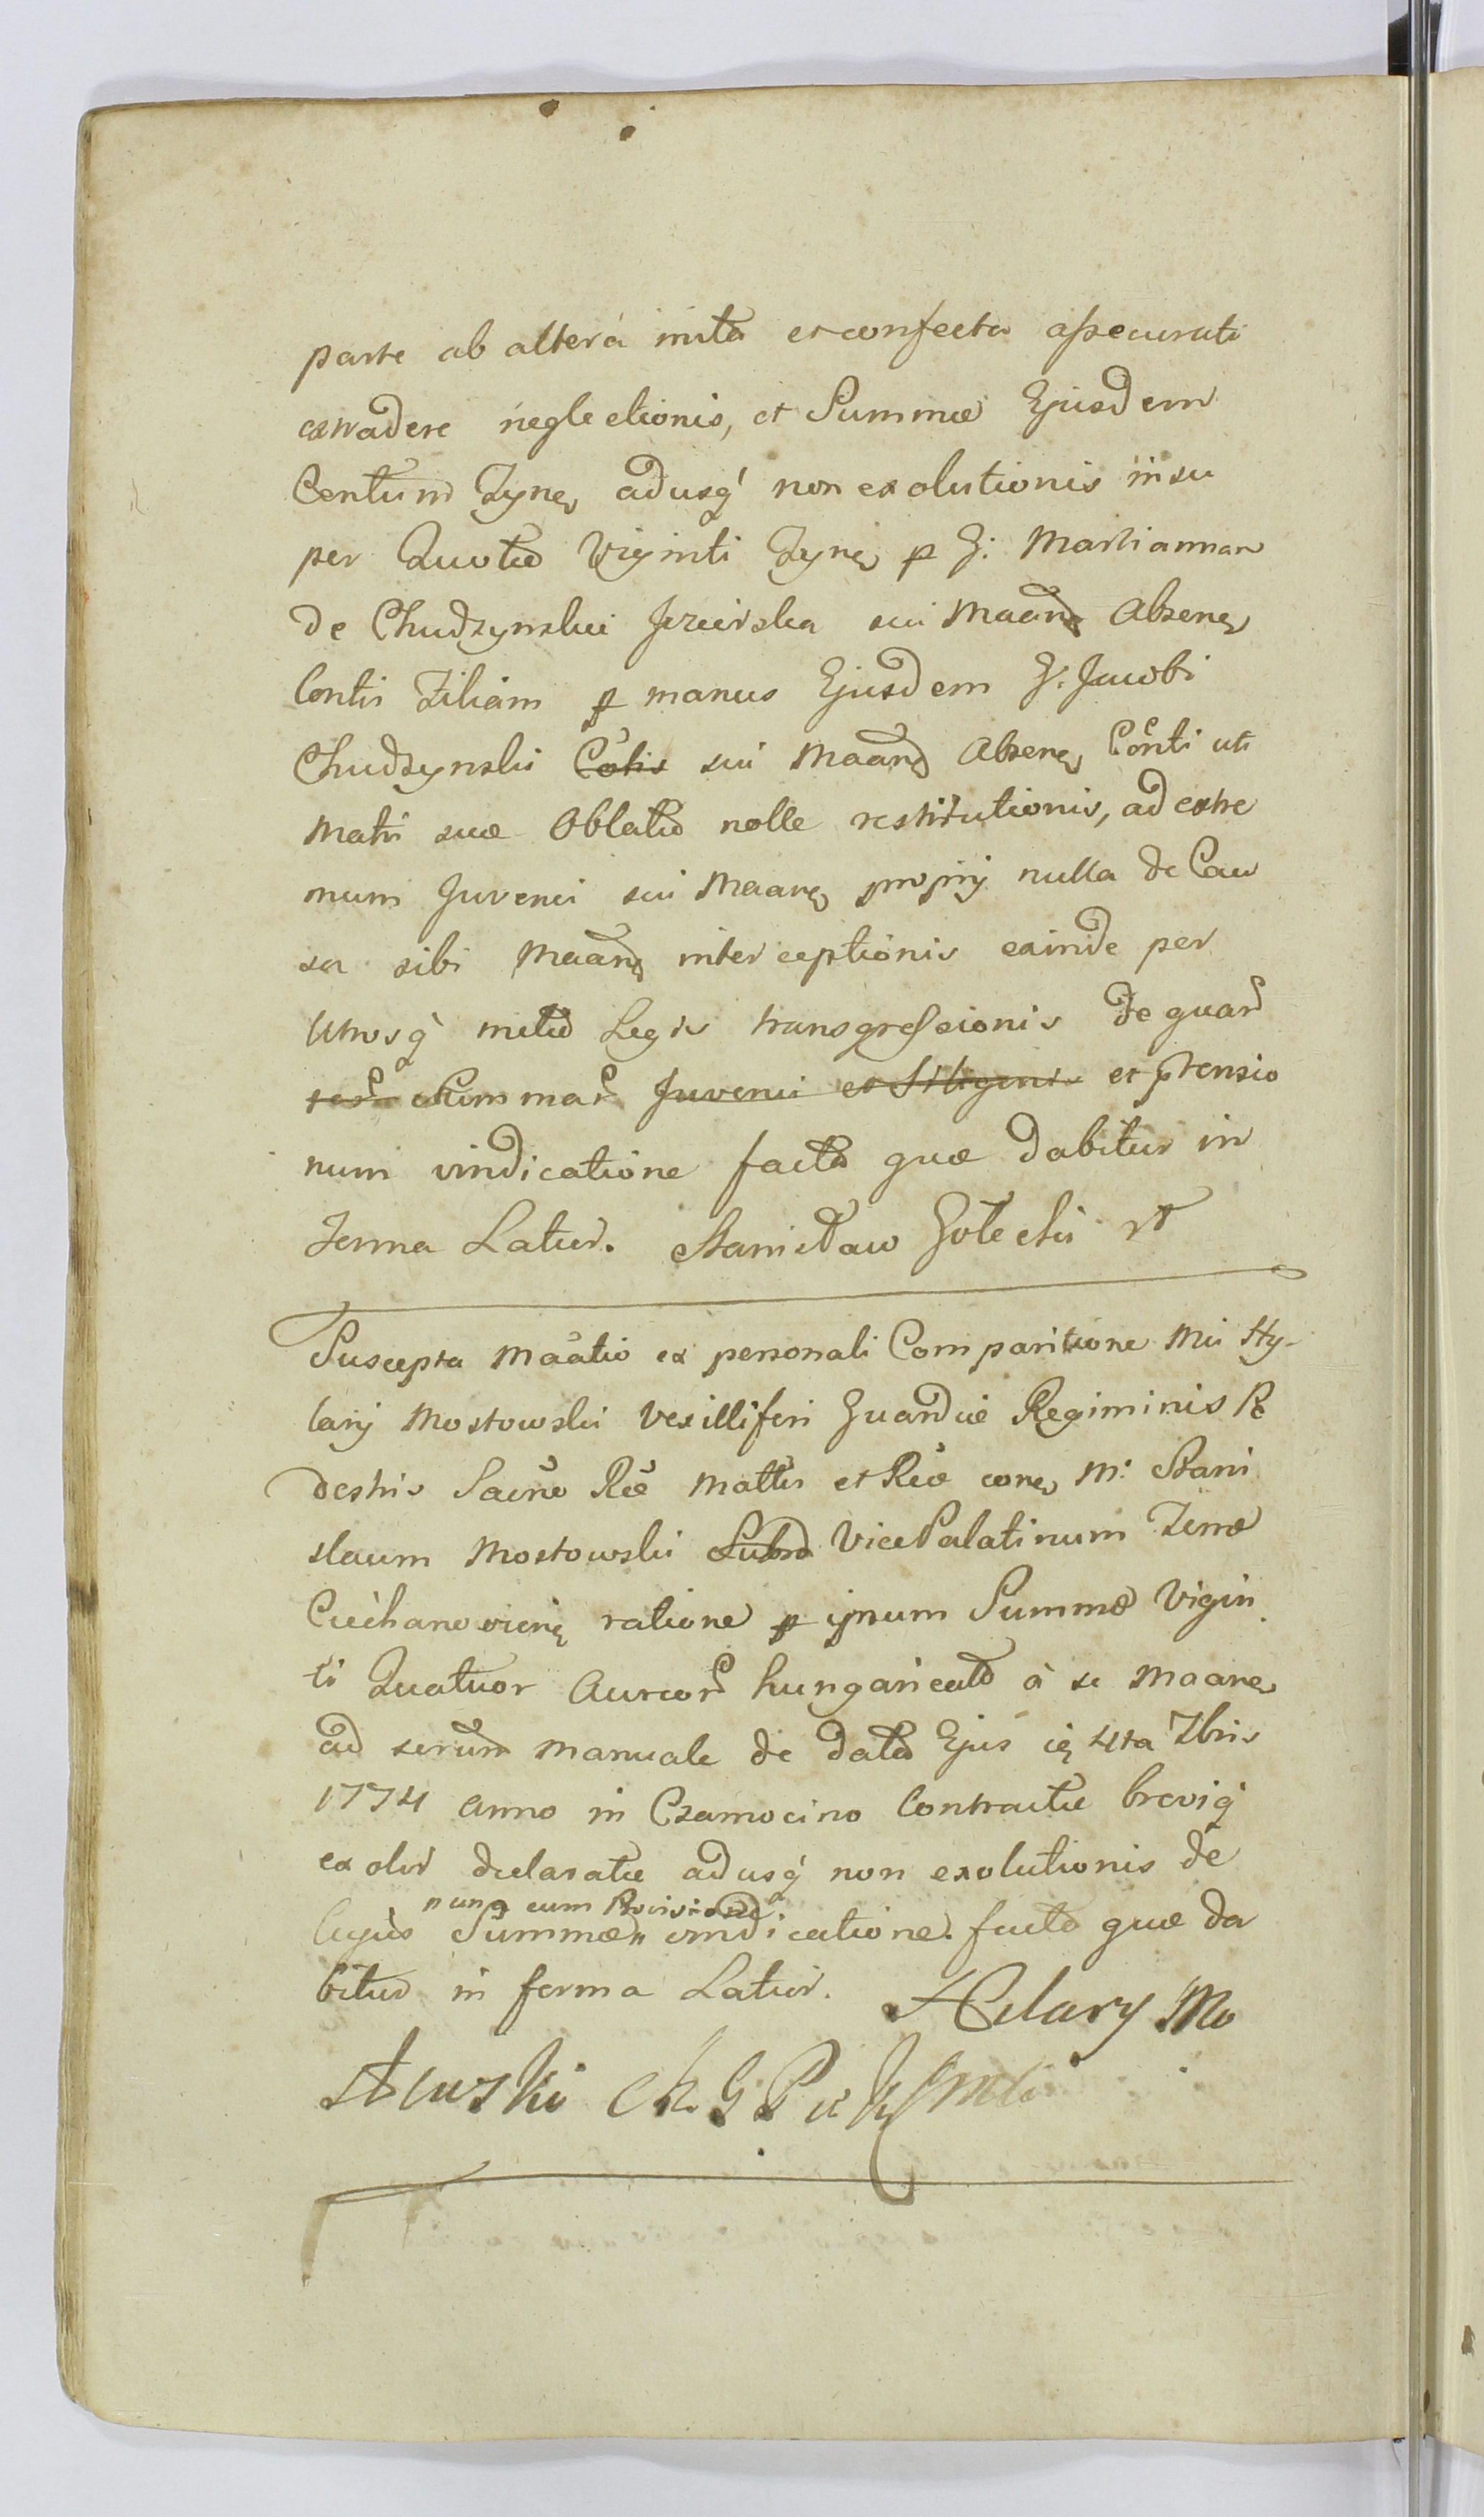 parte ab alterá inita et confecta assecurati
extradere neglectionis, et Summæ Ejusdem
Centum Tyne adusq non exolutionis insu
per Quota Viginti Tyne p G: Mariannam
de Chudzynskie Jezierska sui Maane Absene
Contis Filiam p manus Ejusdem G: Jacobi
Chudzynski Cotis sui Maane Absene Conti uti
Matri suæ Oblata nolle restitutionis, ad extre
mum Juvenci sui Maane proprij nulla de Cau
sa sibi Maane interceptionis exinde per
Utrosq metu Legis transgressionis de quar
summar Juvenci et et ptensio
num vindicatione facta quæ dabitur in
Terma Latur. Stanisław Gołecki
Suscepta Maatio ex personali Comparitione Mci Hy-
larij Mostowski Vexilliferi Guardiæ Regiminis Pe
destris Sacræ Ræ Mattis et Reæ cone M: Stani
slaum Mostowski Vice Palatinum Terræ
Ciechanoviene ratione p ipsum Summæ Vigin
ti Quatuor Aureor hungaricalu à se Maane
ad serum manuale de data Ejus ie 4ta 7bris
1774 anno in Czamocino Contractæ brevig
exolvi declaratæ adusq non exolutionis de
nunq cum Provisione
Cujus Summæ vindicatione facta quæ da
bitur in ferma Latur. Hilary Mo
stowski Ch G P